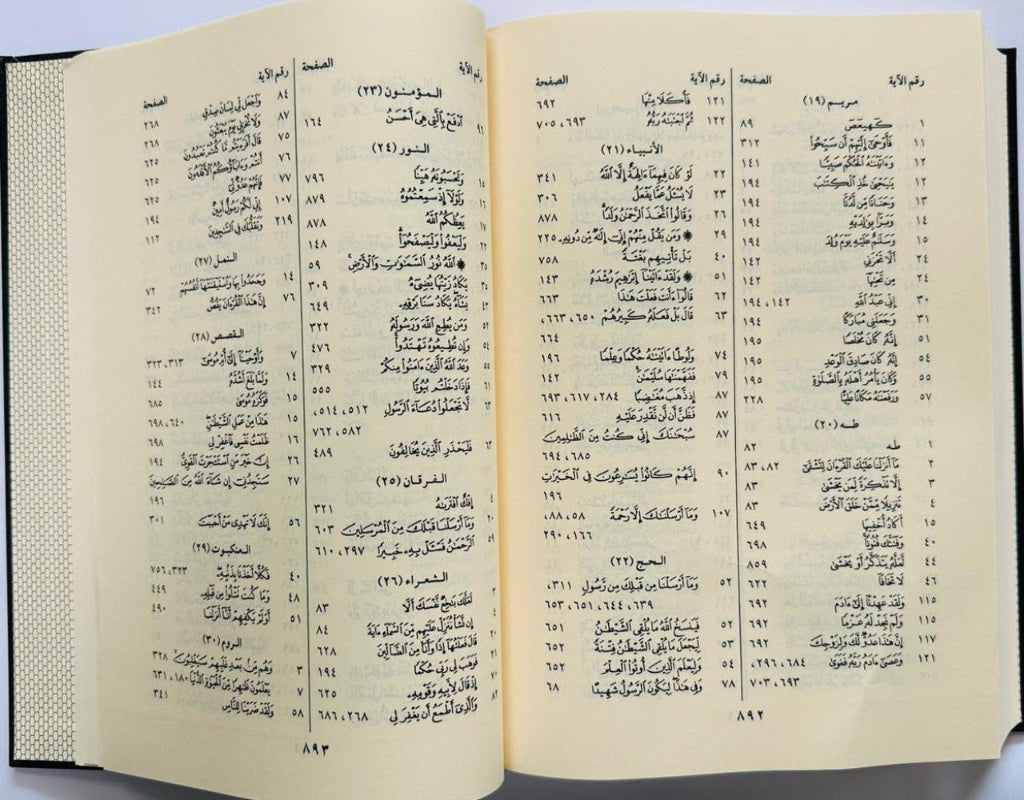 رقم الآية الصفحة
مريم (١٩)
١ كهيعص ٨٩
١١ فأوحى إليهم أن سبحوا ٣١٢
١٢ وءاتينه الحكم صبيا ١٤١
١٢ ييحيى خذ الكتب ١٩٤
١٣ وحنانا من لدنا ١٩٤
١٤ وبرا بوالديه ١٩٤
١٥ وسلم عليه يوم ولد ١٩٤
٢٤ ألا تحزني ١٤٢
٢٤ من تحتها ١٤٢
٣٠ إني عبد الله ١٤٢، ١٩٤
٣١ وجعلني مباركا ١٩٤
٥١ إنه كان مخلصا ١٩٥
٥٤ إنه كان صادق الوعد ١٩٥
٥٥ وكان يأمر أهله بالصلوة ١٩٥
٥٧ ورفعنه مكانا عليا ٢٢٨
طه (٢٠)
١ طه ٨٢
٢ ما أنزلنا عليك القرءان لتشقى ٨٢، ٨٣
٣ إلا تذكرة لمن يخشى ٨٣
٤ تنزيلا ممن خلق الأرض ٨٣
١٥ أكاد أخفيها ٦٤٩
٤٠ وفتنك فتونا ٦٩٨
٤٤ لعله يتذكر أو يخشى ٨٥٩
٤٦ لا تخافا ٦٢٢
١١٥ ولقد عهدنا إلى ءادم ٦٩٢
١١٥ ولم نجد له عزما ٦٩٢
١١٧ إن هذا عدو لك ولزوجك ٦٩٢
١٢١ وعصى ءادم ربه فغوى ٢٩٦، ٦٨٤،
٦٩٣، ٧٠٣
رقم الآية الصفحة
١٢١ فأكلا منها ٦٩٢
١٢٢ ثم اجتبه ربه ٦٩٣، ٧٠٥
الأنبياء (٢١)
٢٢ لو كان فيهما ءالهة إلا الله ٣٤١
٢٣ لا يسئل عما يفعل ٣٠٦
٢٦ وقالوا اتخذ الرحمن ولدا ٨٧٨
٢٩ ومن يقل منهم إني إله من دونه ٢٢٥
٤٠ بل تأتيهم بغتة ٧٥٨
٥١ ولقد ءاتينا إبرهيم رشده ١٤٣
٦٢ قالوا ءأنت فعلت هذا ٦٦٣
٦٣ قال بل فعله كبيرهم ٦٥٠، ٦٦٣،
٦٦٤
٧٤ ولوطا ءاتينه حكما وعلما ١٩٦
٧٩ ففهمنها سليمن ١٤٢
٨٧ إذ ذهب مغضبا ٢٨٤، ٦١٧، ٦٩٣
٨٧ فظن أن لن نقدر عليه ٦١٦
٨٧ سبحنك إني كنت من الظلمين
٦٨٥، ٦٩٤
٩٠ إنهم كانوا يسرعون في الخيرت
١٩٦
١٠٧ وما أرسلنك إلا رحمة ٥٨، ٨٨،
١٦٦، ٢٩٠
الحج (٢٢)
٥٢ وما أرسلنا من قبلك من رسول ٣١١،
٦٣٩، ٦٤٤، ٦٥١، ٦٥٣
٥٢ فينسخ الله ما يلقي الشيطن ٦٥١
٥٣ ليجعل ما يلقي الشيطن فتنة ٦٥٢
٥٤ وليعلم الذين أوتوا العلم ٦٥٢
٧٨ وفي هذا ليكون الرسول شهيدا ٦٨
٨٩٢
رقم الآية الصفحة
المؤمنون (٢٣)
٩٦ ادفع بالتي هي أحسن ١٦٤
النور (٢٤)
١٥ وتحسبونه هينا ٧٩٦
١٦ ولولا إذ سمعتموه ٨٧٩
١٧ يعظكم الله ٨٧٨
٢٢ وليعفوا وليصفحوا ١٤٨
٣٥ الله نور السموت والأرض ٥٩
٣٥ يكاد زيتها يضيء ٣٠٩
٤٣ يكاد سنا برقه ٦٤٩
٥٢ ومن يطع الله ورسوله ٣٢٢
٥٤ وإن تطيعوه تهتدوا ٤٧٦
٥٥ وعد الله الذين ءامنوا منكم ٣٢٩
٦١ فإذا دخلتم بيوتا ٥٥٥
٦٣ لا تجعلوا دعاء الرسول ٥١٢، ٥١٤،
٥٨٢، ٧٦٢
٦٣ فليحذر الذين يخالفون ٤٨٩
الفرقان (٢٥)
٤ إفك افتربه ٣٢١
٢٠ وما أرسلنا قبلك من المرسلين ٦٠٣
٥٩ الرحمن فسئل به خبيرا ٢٩٧، ٦١٠
الشعراء (٢٦)
٣ لعلك بخع نفسك ألا ٨٣
٤ إن نشأ ننزل عليهم من السماء ءاية ٨٤
٢٠ قال فعلتها إذا وأنا من الضالين ٦٢٨
٢١ فوهب لي ربي حكما ١٩٤
٧٠ إذ قال لأبيه وقومه ٦٢٥
٨٢ والذي أطمع أن يغفر لي ٢٦٨، ٦٨٦
رقم الآية الصفحة
٨٤ واجعل لي لسان صدق ٢٦٨
٨٧ ولا تخزني يوم يبعثون ٢٦٨
٧٥ قال أفرءيتم ما كنتم تعبدون ٦٢٥
٧٦ أنتم وءاباؤكم الأقدمون ٦٢٥
٧٧ فإنهم عدو لي ٦٢٥
١٠٧ إني لكم رسول أمين ١٩٤
٢١٩ وتقلبك في السجدين ١١٢
النمل (٢٧)
١٤ وجحدوا بها واستيقنتها أنفسهم ٧٢
٧٦ إن هذا القرءان يقص ٣٤٢
القصص (٢٨)
٧ وأوحينا إلى أم موسى ٣١٣، ٣٢٣
١٤ ولما بلغ أشده ١٤٤
١٥ فوكزه موسى ٦٨٥
١٥ هذا من عمل الشيطن ٦٤٠، ٦٩٨
١٦ ظلمت نفسي فاغفر لي ٦٩٨
٢٦ إن خير من استئجرت القوي ١٩٤
٢٧ ستجدني إن شاء الله من الصلحين
١٩٦
٥٦ إنك لا تهدي من أحببت ٣٠١
العنكبوت (٢٩)
٤٠ فكلا أخذنا بذنبه ٣٢٣، ٧٥٦
٤٨ وما كنت تتلوا من قبله ٤٤٩
٥١ أولم يكفهم أنا أنزلنا ٤٩٠
الروم (٣٠)
٣ وهم من بعد غلبهم سيغلبون ٣٢٨
٧ يعلمون ظهرا من الحيوة الدنيا ١٨٠، ٦٣١
٥٨ ولقد ضربنا للناس ٣٤١
٨٩٣